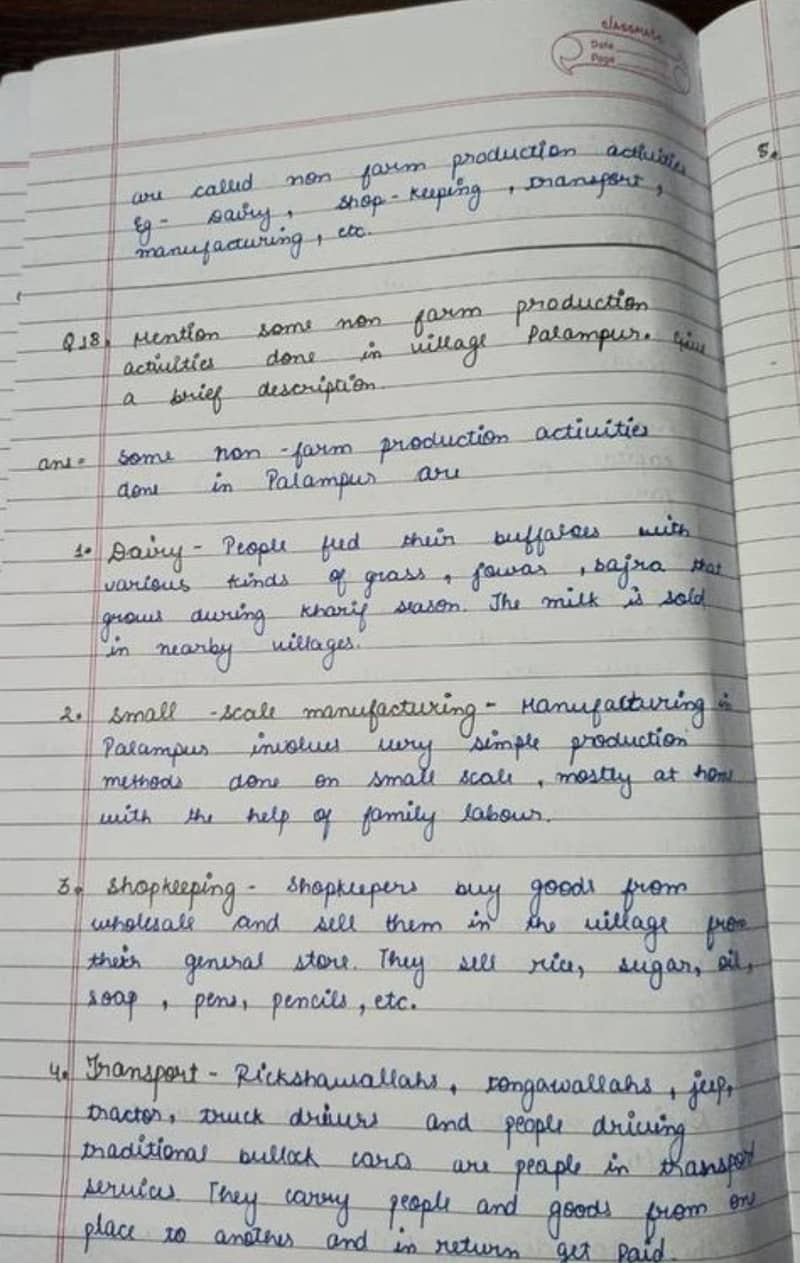 classmate
Date
Page
are called non farm production activities
Eg - Dairy, shop-keeping, transport,
manufacturing, etc.
5.
Q18. Mention some non farm production
activities done in village Palampur. Give
a brief description.
ans- Some non-farm production activities
done in Palampur are
1. Dairy - People fed their buffaloes with
various kinds of grass, jowar, bajra that
grows during kharif season. The milk is sold
in nearby villages.
2. Small -scale manufacturing - Manufacturing in
Palampur involves very simple production
methods done on small scale, mostly at home
with the help of family labour.
3. Shopkeeping - Shopkeepers buy goods from
wholesale and sell them in the village from
their general store. They sell rice, sugar, oil,
soap, pens, pencils, etc.
4. Transport - Rickshawallahs, tongawallahs, jeep,
tractor, truck drivers and people driving
traditional bullock cars are people in transport
services They carry people and goods from one
place to another and in return get paid.